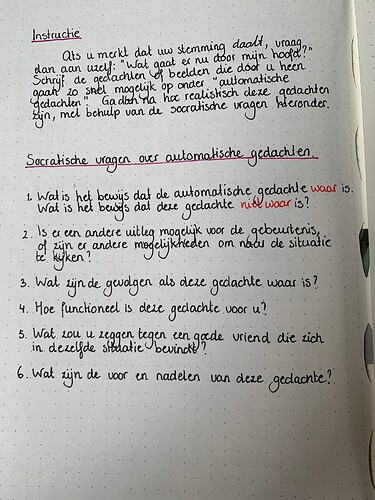 Instructie
Als u merkt dat uw stemming daalt, vraag
dan aan uzelf: "Wat gaat er nu door mijn hoofd?"
Schrijf de gedachten of beelden die door u heen
gaan zo snel mogelijk op onder "automatische
gedachten". Ga dan na hoe realistisch deze gedachten
zijn, met behulp van de socratische vragen hieronder.
Socratische vragen over automatische gedachten
1. Wat is het bewijs dat de automatische gedachte waar is.
Wat is het bewijs dat deze gedachte niet waar is?
2. Is er een andere uitleg mogelijk voor de gebeurtenis,
of zijn er andere mogelijkheden om naar de situatie
te kijken?
3. Wat zijn de gevolgen als deze gedachte waar is?
4. Hoe functioneel is deze gedachte voor u?
5. Wat zou u zeggen tegen een goede vriend die zich
in dezelfde situatie bevindt?
6. Wat zijn de voor en nadelen van deze gedachte?